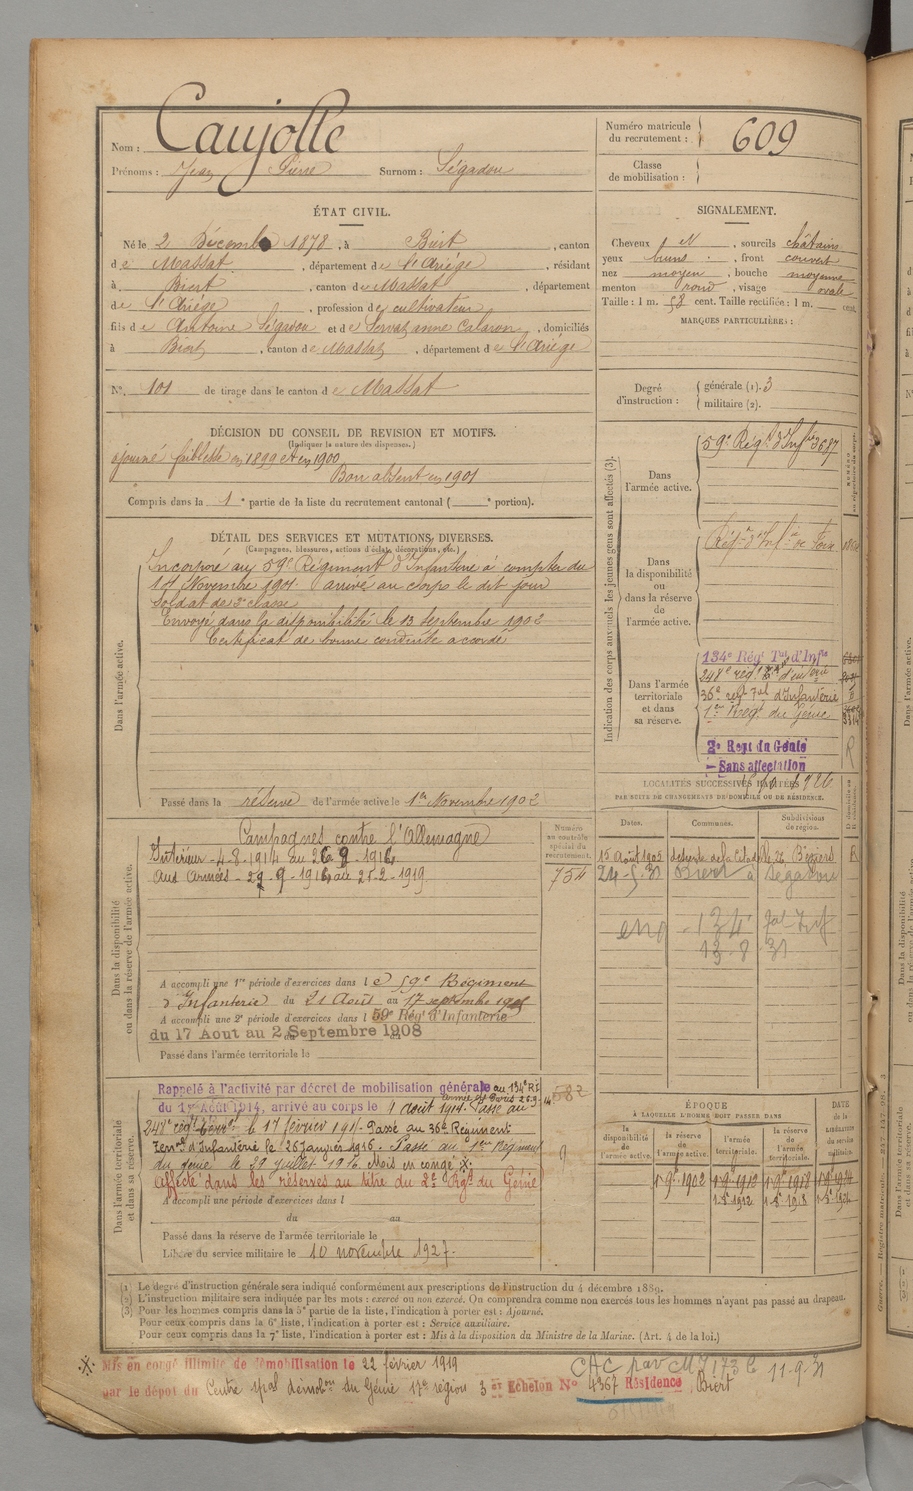 Nom : Caujolle
Prénoms : Jean Pierre Surnom : Ségadou
Numéro matricule du recrutement : 609
Classe de mobilisation :
ÉTAT CIVIL.
Né le 2 Décembre 1878, à Biert, canton
de Massat, département de l'Ariège, résidant
à Biert, canton de Massat, département
de l'Ariège, profession de cultivateur
fils de Antoine Ségadou et de Servat anne Calaron, domiciliés
à Biert, canton de Massat, département de l'Ariège
N° 101 de tirage dans le canton de Massat
SIGNALEMENT.
Cheveux et, sourcils châtains
yeux bruns, front couvert
nez moyen, bouche moyenne
menton rond, visage ovale
Taille : 1 m. 58 cent. Taille rectifiée : 1 m. cent.
MARQUES PARTICULIÈRES :
Degré d'instruction : générale (1). 3
militaire (2).
DÉCISION DU CONSEIL DE REVISION ET MOTIFS.
(Indiquer la nature des dispenses.)
ajourné faiblesse en 1899 et en 1900
Bon absent en 1901
Compris dans la 1e partie de la liste du recrutement cantonal ( e portion).
DÉTAIL DES SERVICES ET MUTATIONS DIVERSES.
(Campagnes, blessures, actions d'éclat, décorations, etc.)
Dans l'armée active.
Incorporé au 59e Régiment d'Infanterie à compter du
17 Novembre 1901. arrivé au corps le dit jour
soldat de 2e classe
Envoyé dans la disponibilité le 13 septembre 1902
Certificat de bonne conduite accordé
Passé dans la réserve de l'armée active le 1er Novembre 1902
Indication des corps auxquels les jeunes gens sont affectés (3).
Dans l'armée active.
59e Régt d'Infie 3687
Dans la disponibilité ou dans la réserve de l'armée active.
Régt d'Infie de Foix
Dans l'armée territoriale et dans sa réserve.
134e Régt Tal d'Infie
248e régt d'infie
36e regt Tal d'Infanterie
1er Regt du Génie
2e Regt du Génie
Sans affectation
LOCALITÉS SUCCESSIVES HABITÉES
PAR SUITE DE CHANGEMENTS DE DOMICILE OU DE RÉSIDENCE.
Dates. Communes. Subdivisions de région. D. domicile ou R. résidence.
15 août 1905 Béziers R
24-5-31 Biert à Segadou
134 tal Inf
13-8-31
Dans la disponibilité ou dans la réserve de l'armée active.
Numéro au contrôle spécial du recrutement.
754
Campagnes contre l'Allemagne
Intérieur - 4-8-1914 au 26-9-1916
Aux Armées - 27-9-1916 au 25-2-1919
A accompli une 1re période d'exercices dans le 59e Régiment
d'Infanterie du 21 Août au 17 septembre 1905
A accompli une 2e période d'exercices dans l 59e Régt d'Infanterie
du 17 Aout au 2 Septembre 1908
Passé dans l'armée territoriale le
Dans l'armée territoriale et dans sa réserve.
Rappelé à l'activité par décret de mobilisation générale au 134e RI
du 1er Août 1914, arrivé au corps le 4 août 1914. Passé au
248e régt le 17 février 191. Passé au 36e Régiment
Terral d'Infanterie le 26 Janvier 1916. Passé au 1er Régiment
du Génie le 29 juillet 1916. Mis en congé ※.
Affecté dans les réserves au titre du 2e Régt du Génie
A accompli une période d'exercices dans l
du au
Passé dans la réserve de l'armée territoriale le
Libéré du service militaire le 10 novembre 1927.
582
ÉPOQUE
À LAQUELLE L'HOMME DOIT PASSER DANS
la disponibilité de l'armée active. la réserve de l'armée active. l'armée territoriale. la réserve de l'armée territoriale. DATE de la LIBÉRATION du service militaire.
1-9e 1902 1-9e 1912 1-9e 1918 1-9e 1924
1-8e 1912 1-8e 1918 1-8e 1924
(1) Le degré d'instruction générale sera indiqué conformément aux prescriptions de l'instruction du 4 décembre 1889.
(2) L'instruction militaire sera indiquée par les mots : exercé ou non exercé. On comprendra comme non exercés tous les hommes n'ayant pas passé au drapeau.
(3) Pour les hommes compris dans la 5e partie de la liste, l'indication à porter est : Ajourné.
Pour ceux compris dans la 6e liste, l'indication à porter est : Service auxiliaire.
Pour ceux compris dans la 7e liste, l'indication à porter est : Mis à la disposition du Ministre de la Marine. (Art. 4 de la loi.)
※ Mis en congé illimité de démobilisation le 22 février 1919
par le dépot du Centre spal démobon du Génie 17e région 3 et Echelon N° 4367 Résidence Biert
CAC par 11-9-31